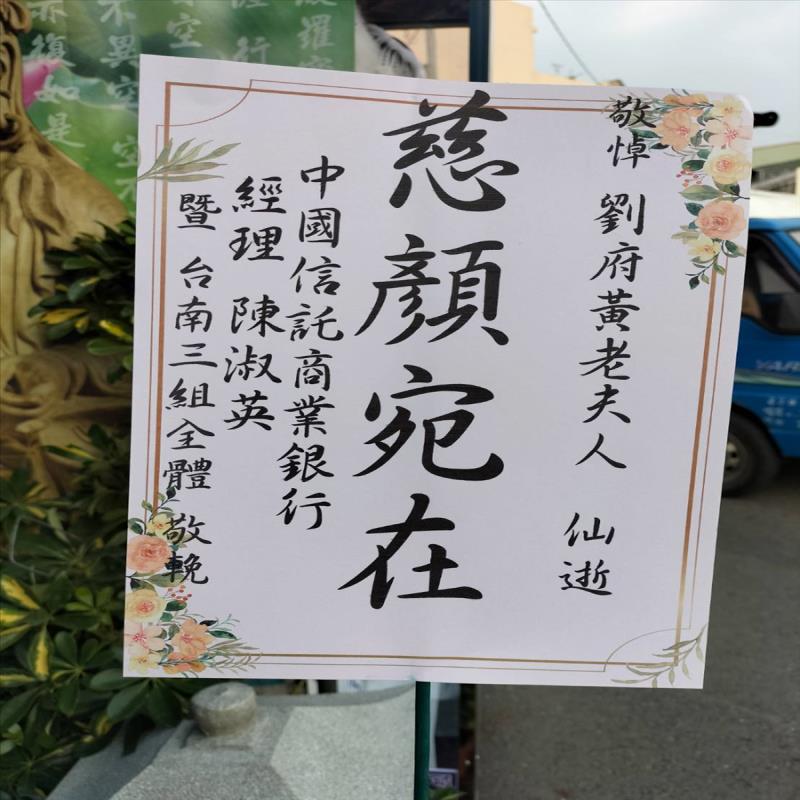 敬悼 劉府黃老夫人 仙逝
慈顏宛在
中國信託商業銀行
經理 陳淑英
暨 台南三組全體 敬輓